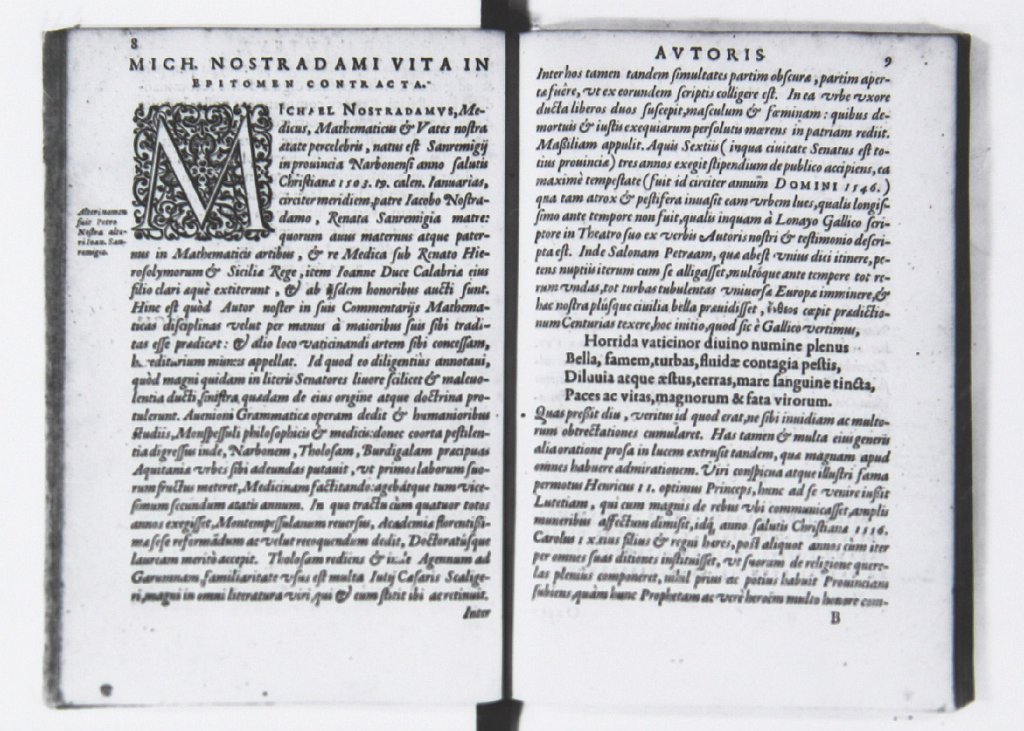 8
MICH. NOSTRADAMI VITA IN
EPITOMEN CONTRACTA.
MICHAEL NOSTRADAMVS, Me-
dicus, Mathematicus & Vates nostra
ætate percelebris, natus est Sanremigij
in prouincia Narbonensi anno salutis
Christianæ 1503. 19. calen. Ianuarias,
circiter meridiem, patre Iacobo Nostra-
damo, Renata Sanremigia matre:
quorum auus maternus atque pater-
nus in Mathematicis artibus, & re Medica sub Renato Hie-
rosolymorum & Siciliæ Rege, item Ioanne Duce Calabriæ eius
filio clari æquè extiterunt, & ab ijsdem honoribus aucti sunt.
Hinc est quòd Autor noster in suis Commentarijs Mathema-
ticas disciplinas velut per manus à maioribus suis sibi tradi-
tas esse prædicet: & alio loco vaticinandi artem sibi concessam,
hæreditarium munus appellat. Id quod eo diligentius annotaui,
quòd magni quidam in literis Senatores liuore scilicet & maleuo-
lentia ducti, sinistra quædam de eius origine atque doctrina pro-
tulerunt. Auenioni Grammaticæ operam dedit & humanioribus
studiis, Monspessuli philosophicis & medicis: donec coorta pestilen-
tia digressus inde, Narbonem, Tholosam, Burdigalam præcipuas
Aquitaniæ vrbes sibi adeundas putauit, vt primos laborum suo-
rum fructus meteret, Medicinam factitando: agebátque tum vice-
simum secundum ætatis annum. In quo tractu cùm quatuor totos
annos exegisset, Montempessulanum reuersus, Academiæ florentissi-
mæ sese reformãdum ac velut recoquendum dedit, Doctoratúsque
lauream meritò accepit. Tholosam rediens & inde Agennum ad
Garumnam, familiaritate vsus est multa Iulij Cæsaris Scalige-
ri, magni in omni literatura viri, qui & eum stitit ibi ac retinuit.
Inter
Alteri nomen
fuit Petro
Nostra alte-
ri Ioan. San-
remigio.
AVTORIS
9
Inter hos tamen tandem simultates partim obscuræ, partim aper-
tæ fuêre, vt ex eorundem scriptis colligere est. In ea vrbe vxore
ducta liberos duos suscepit, masculum & fœminam: quibus de-
mortuis & iustis exequiarum persolutis mœrens in patriam rediit.
Massiliam appulit. Aquis Sextiis (in qua ciuitate Senatus est to-
tius prouinciæ) tres annos exegit stipendium de publico accipiens, ea
maximè tempestate (fuit id circiter annum DOMINI 1546.)
qua tam atrox & pestifera inuasit eam vrbem lues, qualis longis-
simo ante tempore non fuit, qualis inquam à Lonayo Gallico scri-
ptore in Theatro suo ex verbis Autoris nostri & testimonio descri-
pta est. Inde Salonam Petræam, quæ abest vnius diei itinere, pe-
tens nuptiis iterum cum se alligasset, multóque ante tempore tot re-
rum vndas, tot turbas tubulentas vniuersæ Europæ imminere, &
hæc nostra plúsque ciuilia bella præuidisset, cœpit prædictio-
num Centurias texere, hoc initio, quod sic è Gallico vertimus,
Horrida vaticinor diuino numine plenus
Bella, famem, turbas, fluidæ contagia pestis,
Diluuia atque æstus, terras, mare sanguine tincta,
Paces ac vitas, magnorum & fata virorum.
Quas pressit diu, veritus id quod erat, ne sibi inuidiam ac multo-
rum obtrectationes cumularet. Has tamen & multa eius generis
alia oratione prosa in lucem extrusit tandem, quæ magnam apud
omnes habuere admirationem. Viri conspicua atque illustri fama
permotus Henricus II. optimus Princeps, hunc ad se venire iussit
Lutetiam, qui cum magnis de rebus vbi communicasset, amplis
muneribus affectum dimisit, idq; anno salutis Christianæ 1556.
Carolus IX. eius filius & regni heres, post aliquot annos cùm iter
per omnes suas ditiones instituisset, vt suorum de religione quere-
las plenius componeret, nihil prius ac potius habuit Prouinciam
subiens, quàm hunc Prophetam ac verè heroëm multo honore com-
B